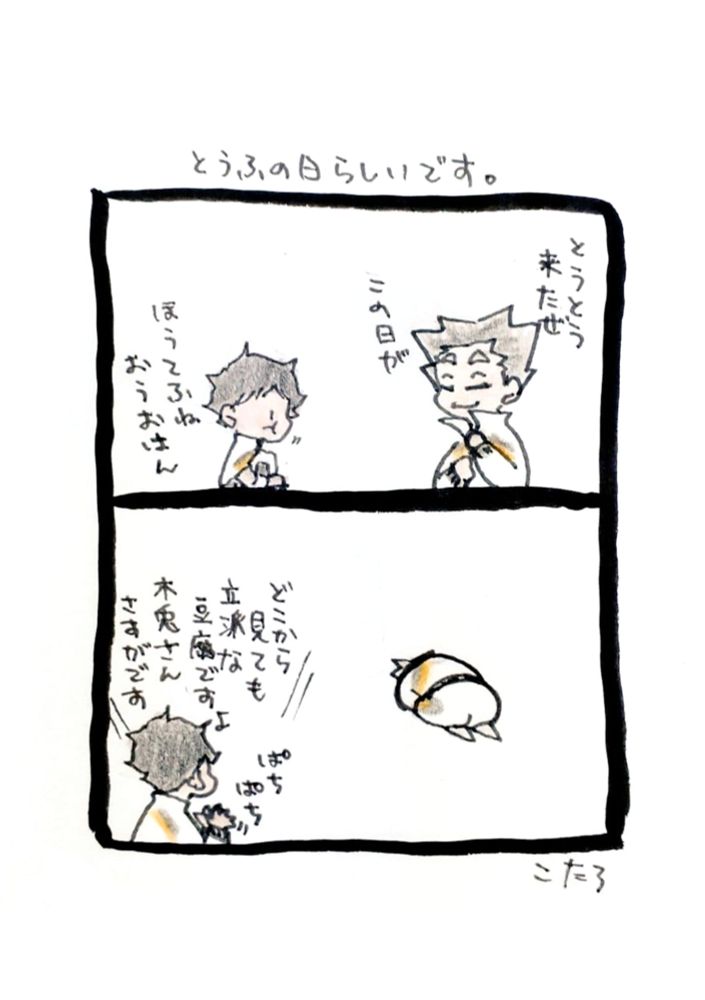 とうふの日らしいです。
とうとう
来たぜ
この日が
ほうてふね
おうおはん
どこから
見ても
立派な
豆腐ですよ
木兎さん
さすがです
ぱち
ぱち
こたろ